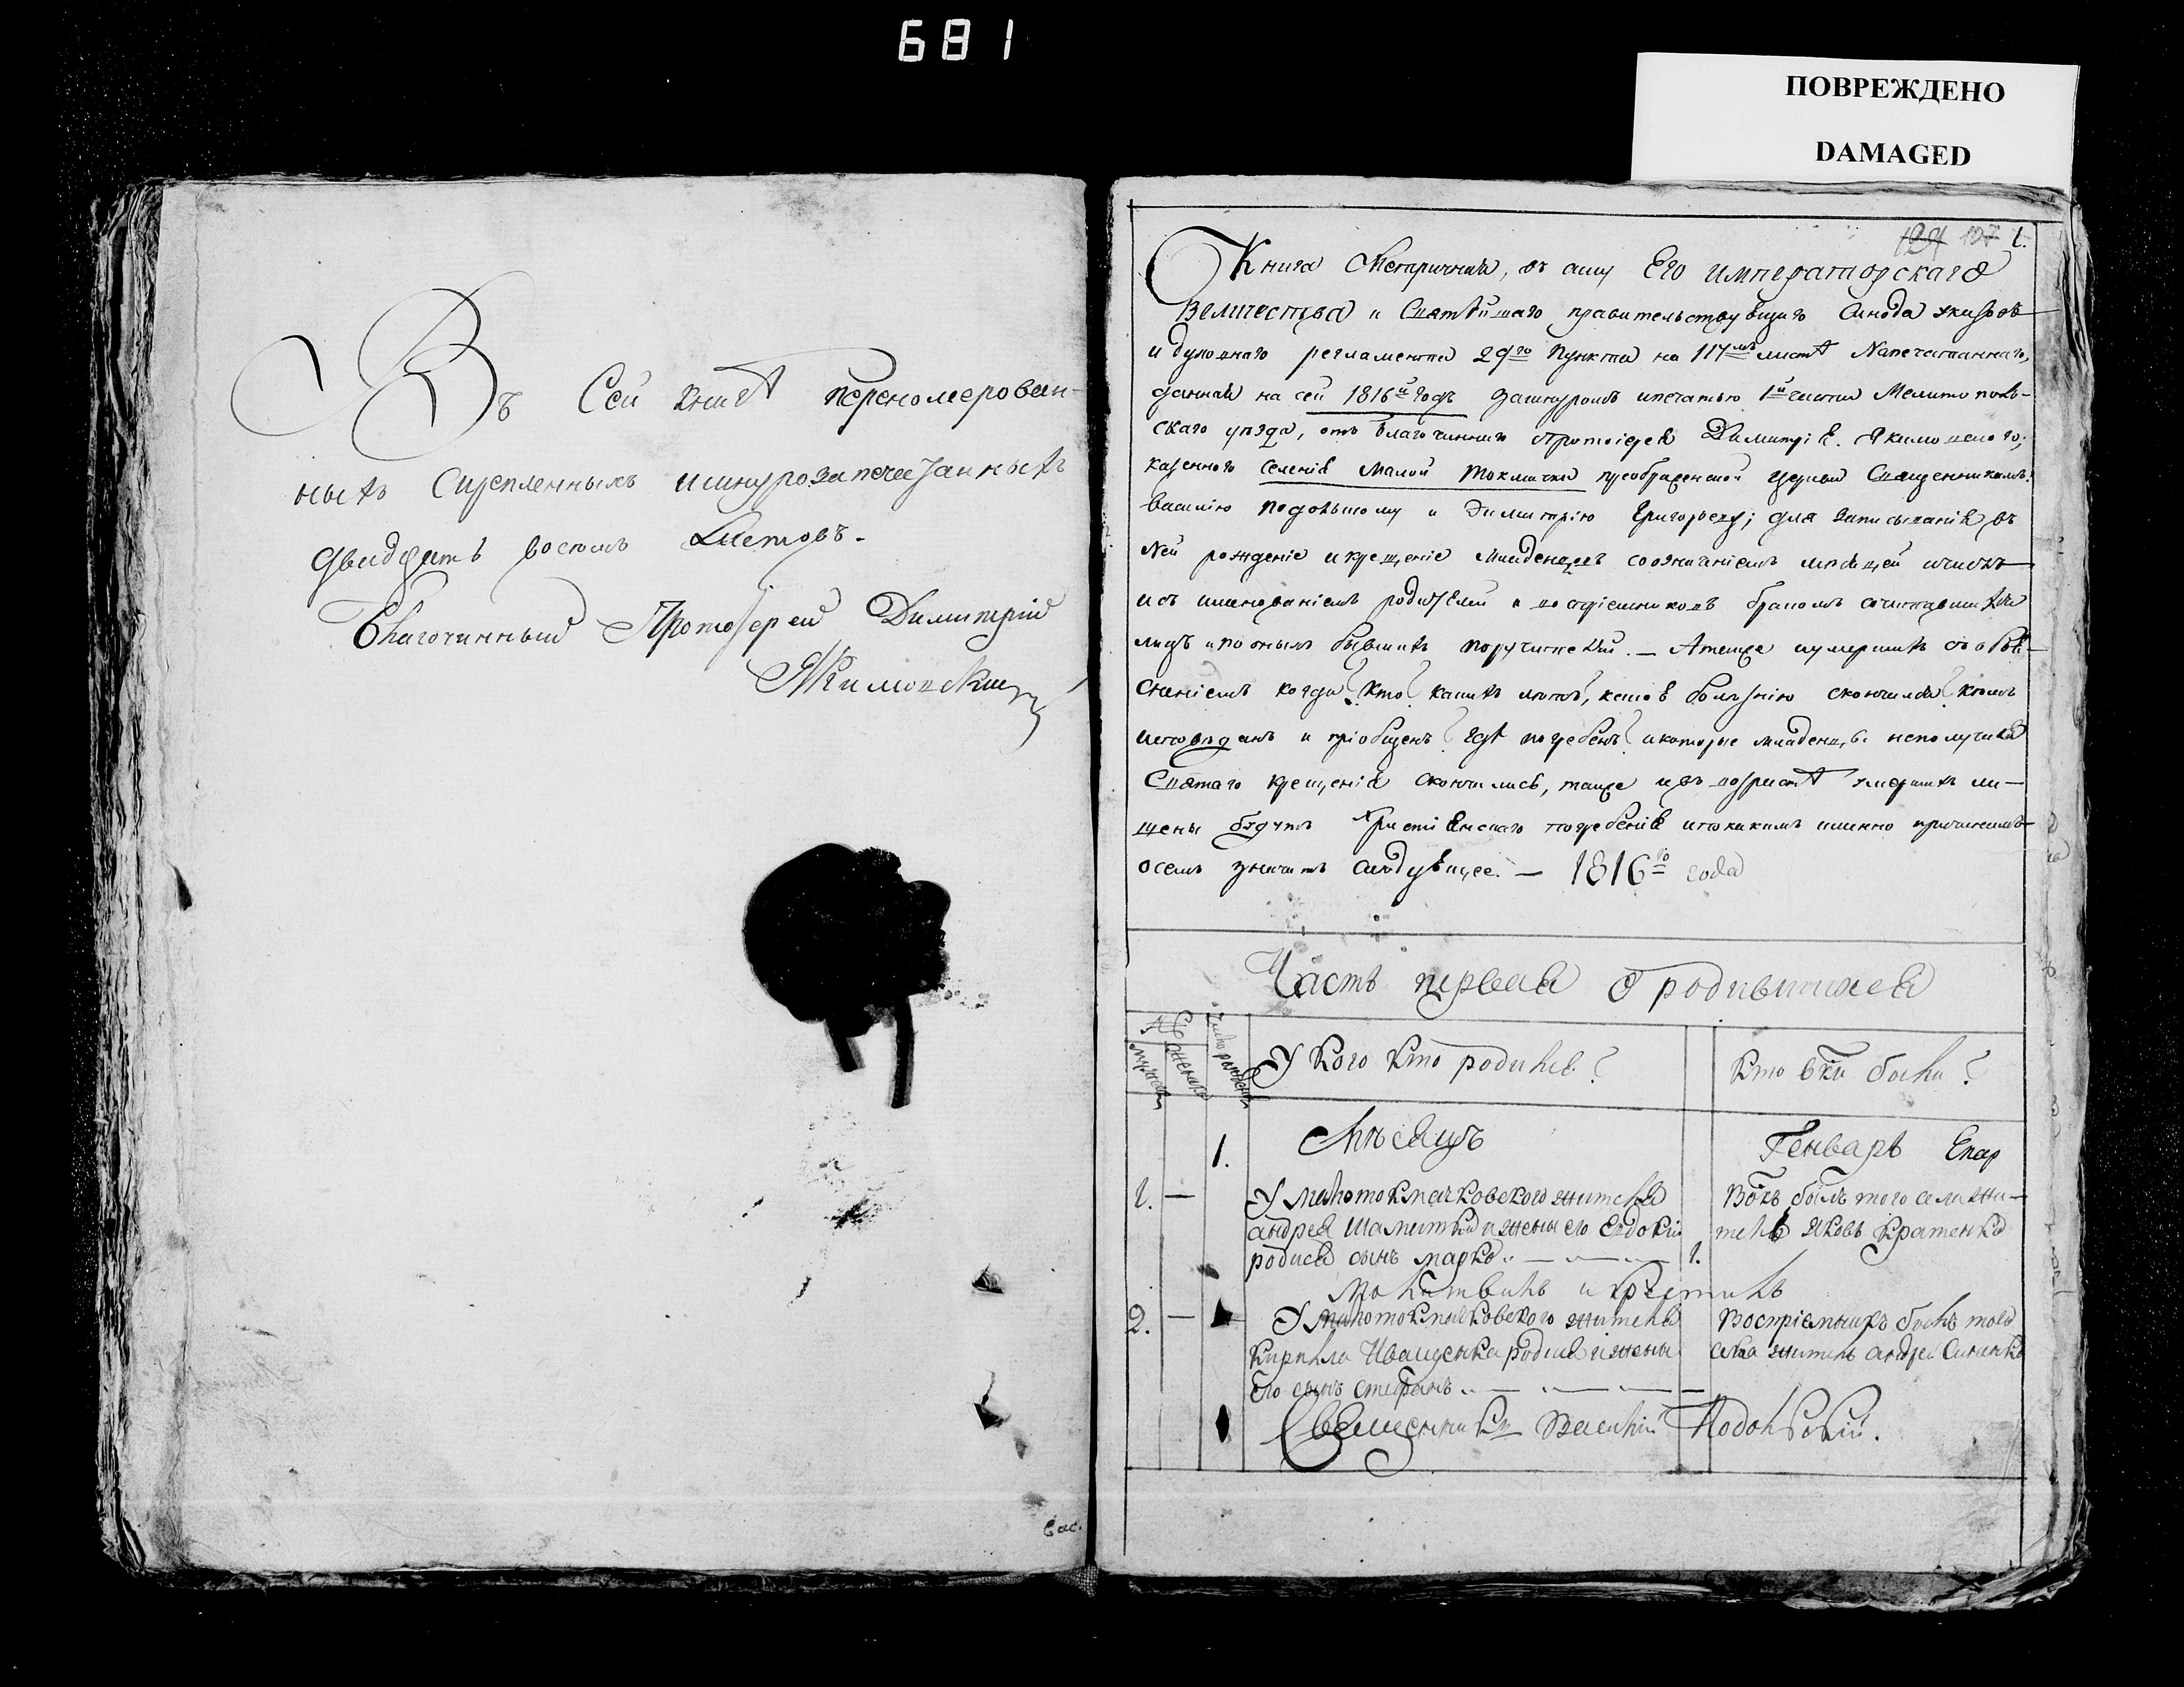 681
ПОВРЕЖДЕНО
DAMAGED
Въ Сей книгѣ перномерован-
ныхъ скрепленныхъ и шнурозапечатанныхъ
двадцать восемь листовъ.
Благочинный Протоіерей Димитрій
Якимовскій
127 1.
Книга Метричная, въ силу Его императорскаго
Величества и Святѣйшаго правительствующаго Синода указовъ
и духовнаго регламента 29го пункта на 117мъ листѣ Напечатаннаго,
данная на сей 1816й годъ за шнуромъ и печатью 1й части Мелитополь-
скаго уезда, отъ благочиннаго протоіерея Димитрія Якимовскаго,
казенного селенія Малой Токмачки преображенской церкви Священникамъ
василію подольскому и Димитрію Григорьеву; для записыванія въ
ней рожденіе и крещеніе младенцевъ со означаніемъ месяцей и числъ
и съ именованіемъ родителей и воспріемниковъ бракомъ сочитавшихся
лицъ и по онымъ бывшихъ поручителей. — Также и умершихъ со объя-
сненіемъ когда? Кто? какихъ летъ, какою болезнію скончался? кемъ
исповеданъ и пріобщенъ? гдѣ погребенъ? и которые младенцы неполучивъ
Святаго крещенія скончались, также и въ возрастѣ умершихъ ли-
шены будутъ Христіянскаго погребенія и по какимъ именно причинамъ
о семъ значитъ следующее. — 1816го года
Часть первая о родившихся
мужеска
женска
число рожденія
У Кого Кто родился?
Кто вкп были?
1. Месяцъ Генварь
1. — У малотокмачковского жителя
андрея Шамытки и жены его Евдокіи
родися сынъ марко .. — 1.
былъ того села жи-
тель яковъ Кратенко
молитвилъ и крестилъ
2. — У малотокмачковского жителя
кирила Иващенка родися и жены
его сынъ стефанъ .. —
Воспріемникъ былъ того
села житель андрей
Священникъ Василій Подольскій.
Вас.